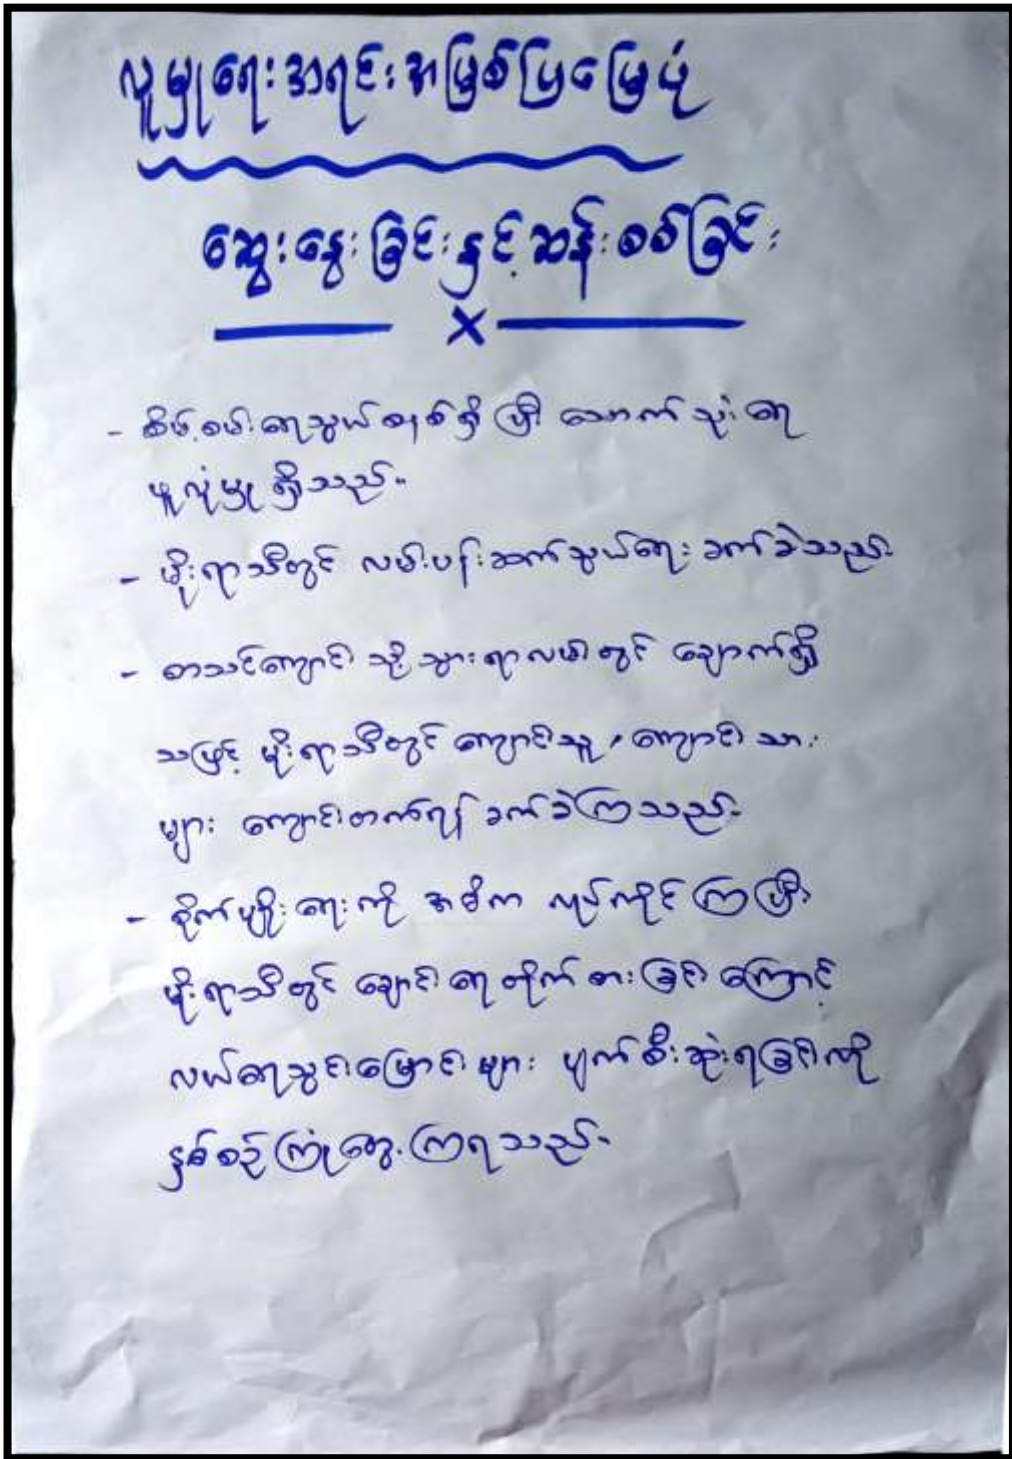 လူမှုရေးအရင်းအမြစ်ပြမြေပုံ
ဆွေးနွေးခြင်းနှင့်ဆန်းစစ်ခြင်း
x
- စိမ့်စမ်းရေသွယ်စနစ်ရှိပြီး သောက်သုံးရေ
ဖူလုံမှုရှိသည်။
- မိုးရာသီတွင် လမ်းပန်းဆက်သွယ်ရေး ခက်ခဲသည်။
- စာသင်ကျောင်း သို့သွားရာလမ်းတွင် ချောက်ရှိ
သဖြင့် မိုးရာသီတွင် ကျောင်းသူ၊ ကျောင်းသား
များ ကျောင်းတက်ရန် ခက်ခဲကြသည်။
- စိုက်ပျိုးရေးကို အဓိက လုပ်ကိုင်ကြပြီး
မိုးရာသီတွင် ချောင်းရေတိုက်စားခြင်းကြောင့်
လယ်ရေသွင်းမြောင်းများ ပျက်စီးဆုံးရခြင်းကို
နှစ်စဉ်ကြုံတွေ့ကြရသည်။